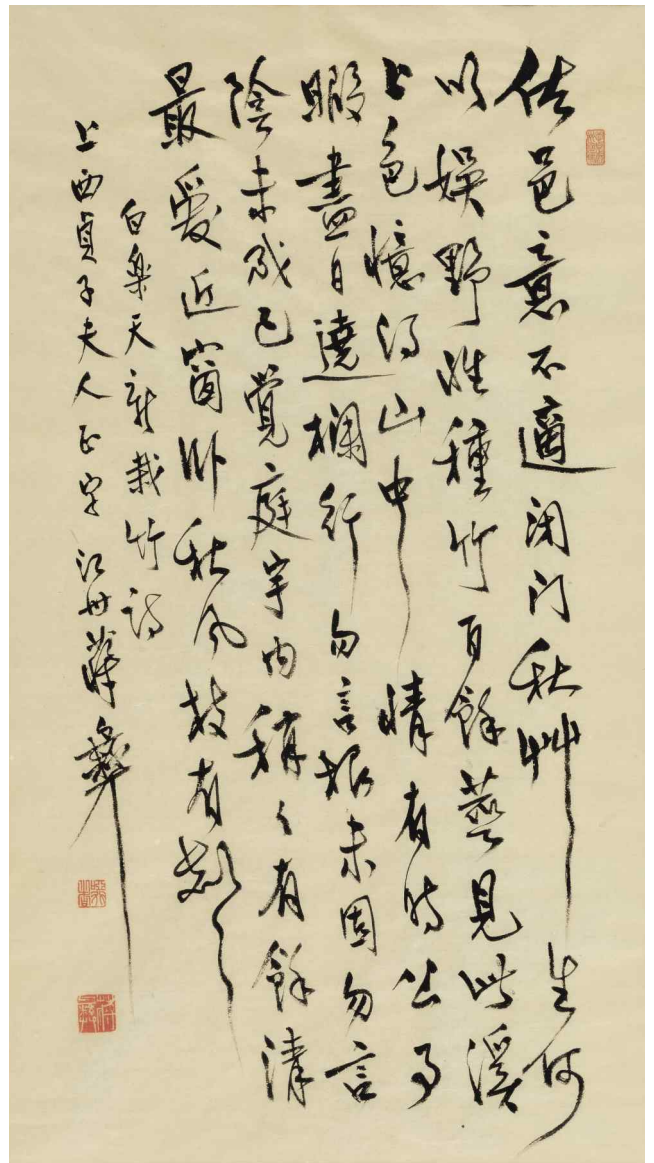 佐邑意不適閉门秋艸生何
以娱野性種竹百餘莖見此溪
上色憶得山中情有時公事
暇盡日遶欄行勿言根未固勿言
陰未成已覺庭宇内稍々有餘清
最愛近窗卧秋風枝有聲
白樂天新栽竹詩
上西貞子夫人正字 薛彝